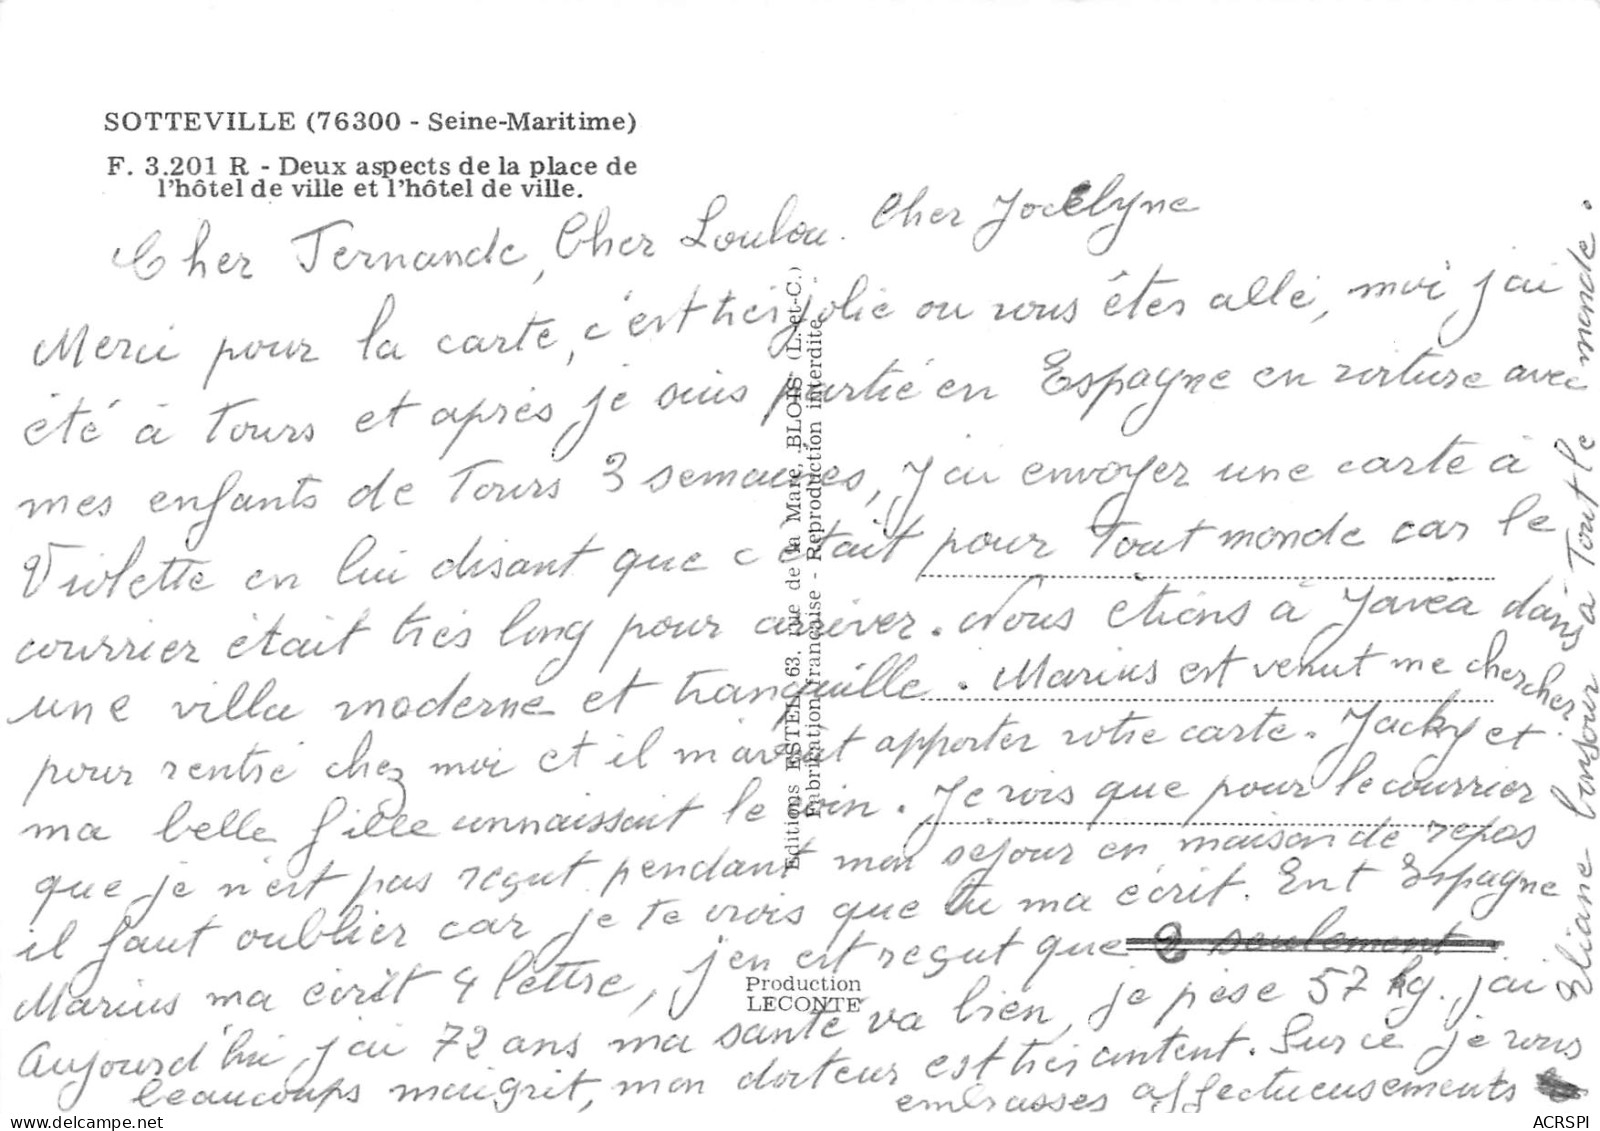 SOTTEVILLE (76300 - Seine-Maritime)
F. 3.201 R - Deux aspects de la place de
l'hôtel de ville et l'hôtel de ville.
Cher Fernande, Cher Loulou. Cher Jocelyne
Merci pour la carte, c'est très jolie ou vous êtes allé, moi j'ai
été à Tours et après je suis partie en Espagne en voiture avec
mes enfants de Tours 3 semaines, J'ai envoyer une carte à
Violette en lui disant que c'était pour Tout monde car le
courrier était très long pour arriver. Nous étions à Javea dans
une villa moderne et tranquille. Marius est venut me chercher
pour rentré chez moi et il m'avait apporter votre carte. Jacky et
ma belle fille connaissait le coin. Je vois que pour le courrier
que je n'est pas reçut pendant mon séjour en maison de repos
il faut oublier car je te crois que tu ma écrit. Ent Espagne
Marius ma écrit 4 lettre, j'en est reçut que 2 seulement.
Aujourd'hui j'ai 72 ans ma santé va bien, je pèse 57 kg. j'ai
beaucoups maigrit, mon docteur est très content. Sur ce je vous
embrasses affectueusements
Eliane bonjour à Tout le monde.
Editions ESTEL, 63, rue de la Mare, BLOIS (L.-et-C.)
Fabrication française - Reproduction interdite
Production
LECONTE
ACRSPI